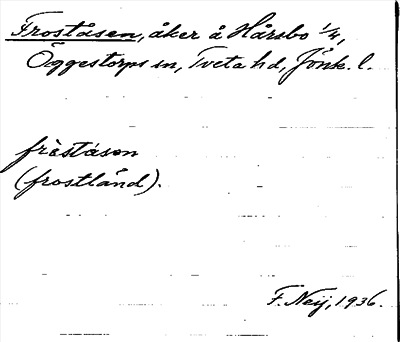 Froståsen, åker å Hårsbo 1/4,
Öggestorps sn, Tveta hd, Jönk. l.
fròståsən
(frostländ).
F. Neij, 1936.